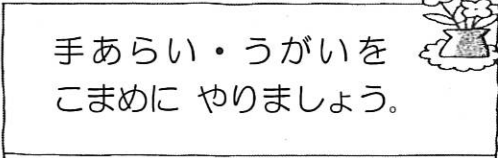 手あらい・うがいを
こまめに やりましょう。